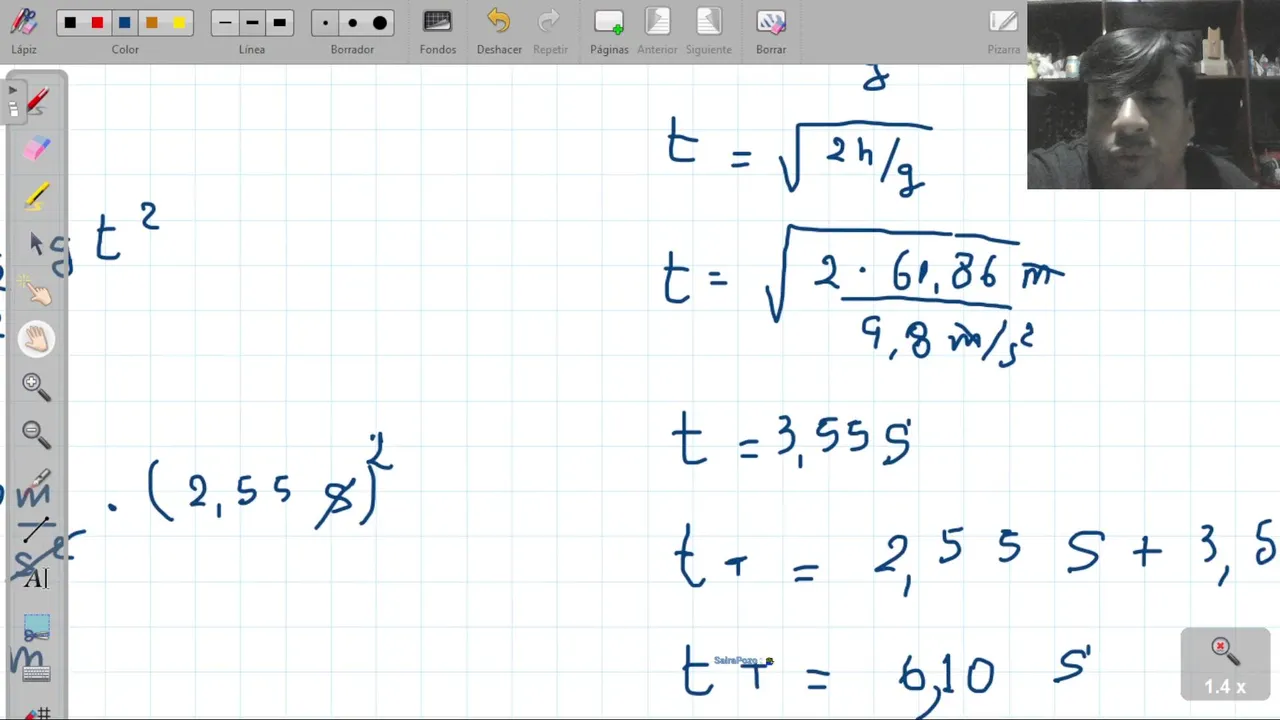 Lápiz
Color
Línea
Borrador
Fondos
Deshacer
Repetir
Páginas
Anterior
Siguiente
Borrar
Pizarra
g
t = √2h/g
g t²
t = √2 . 61,86 m
9,8 m/s²
t = 3,55 s
m . (2,55 s)²
s²
AI
t T = 2,55 s + 3,5
m
t T = 6,10 s
SairaPozo
1.4 x